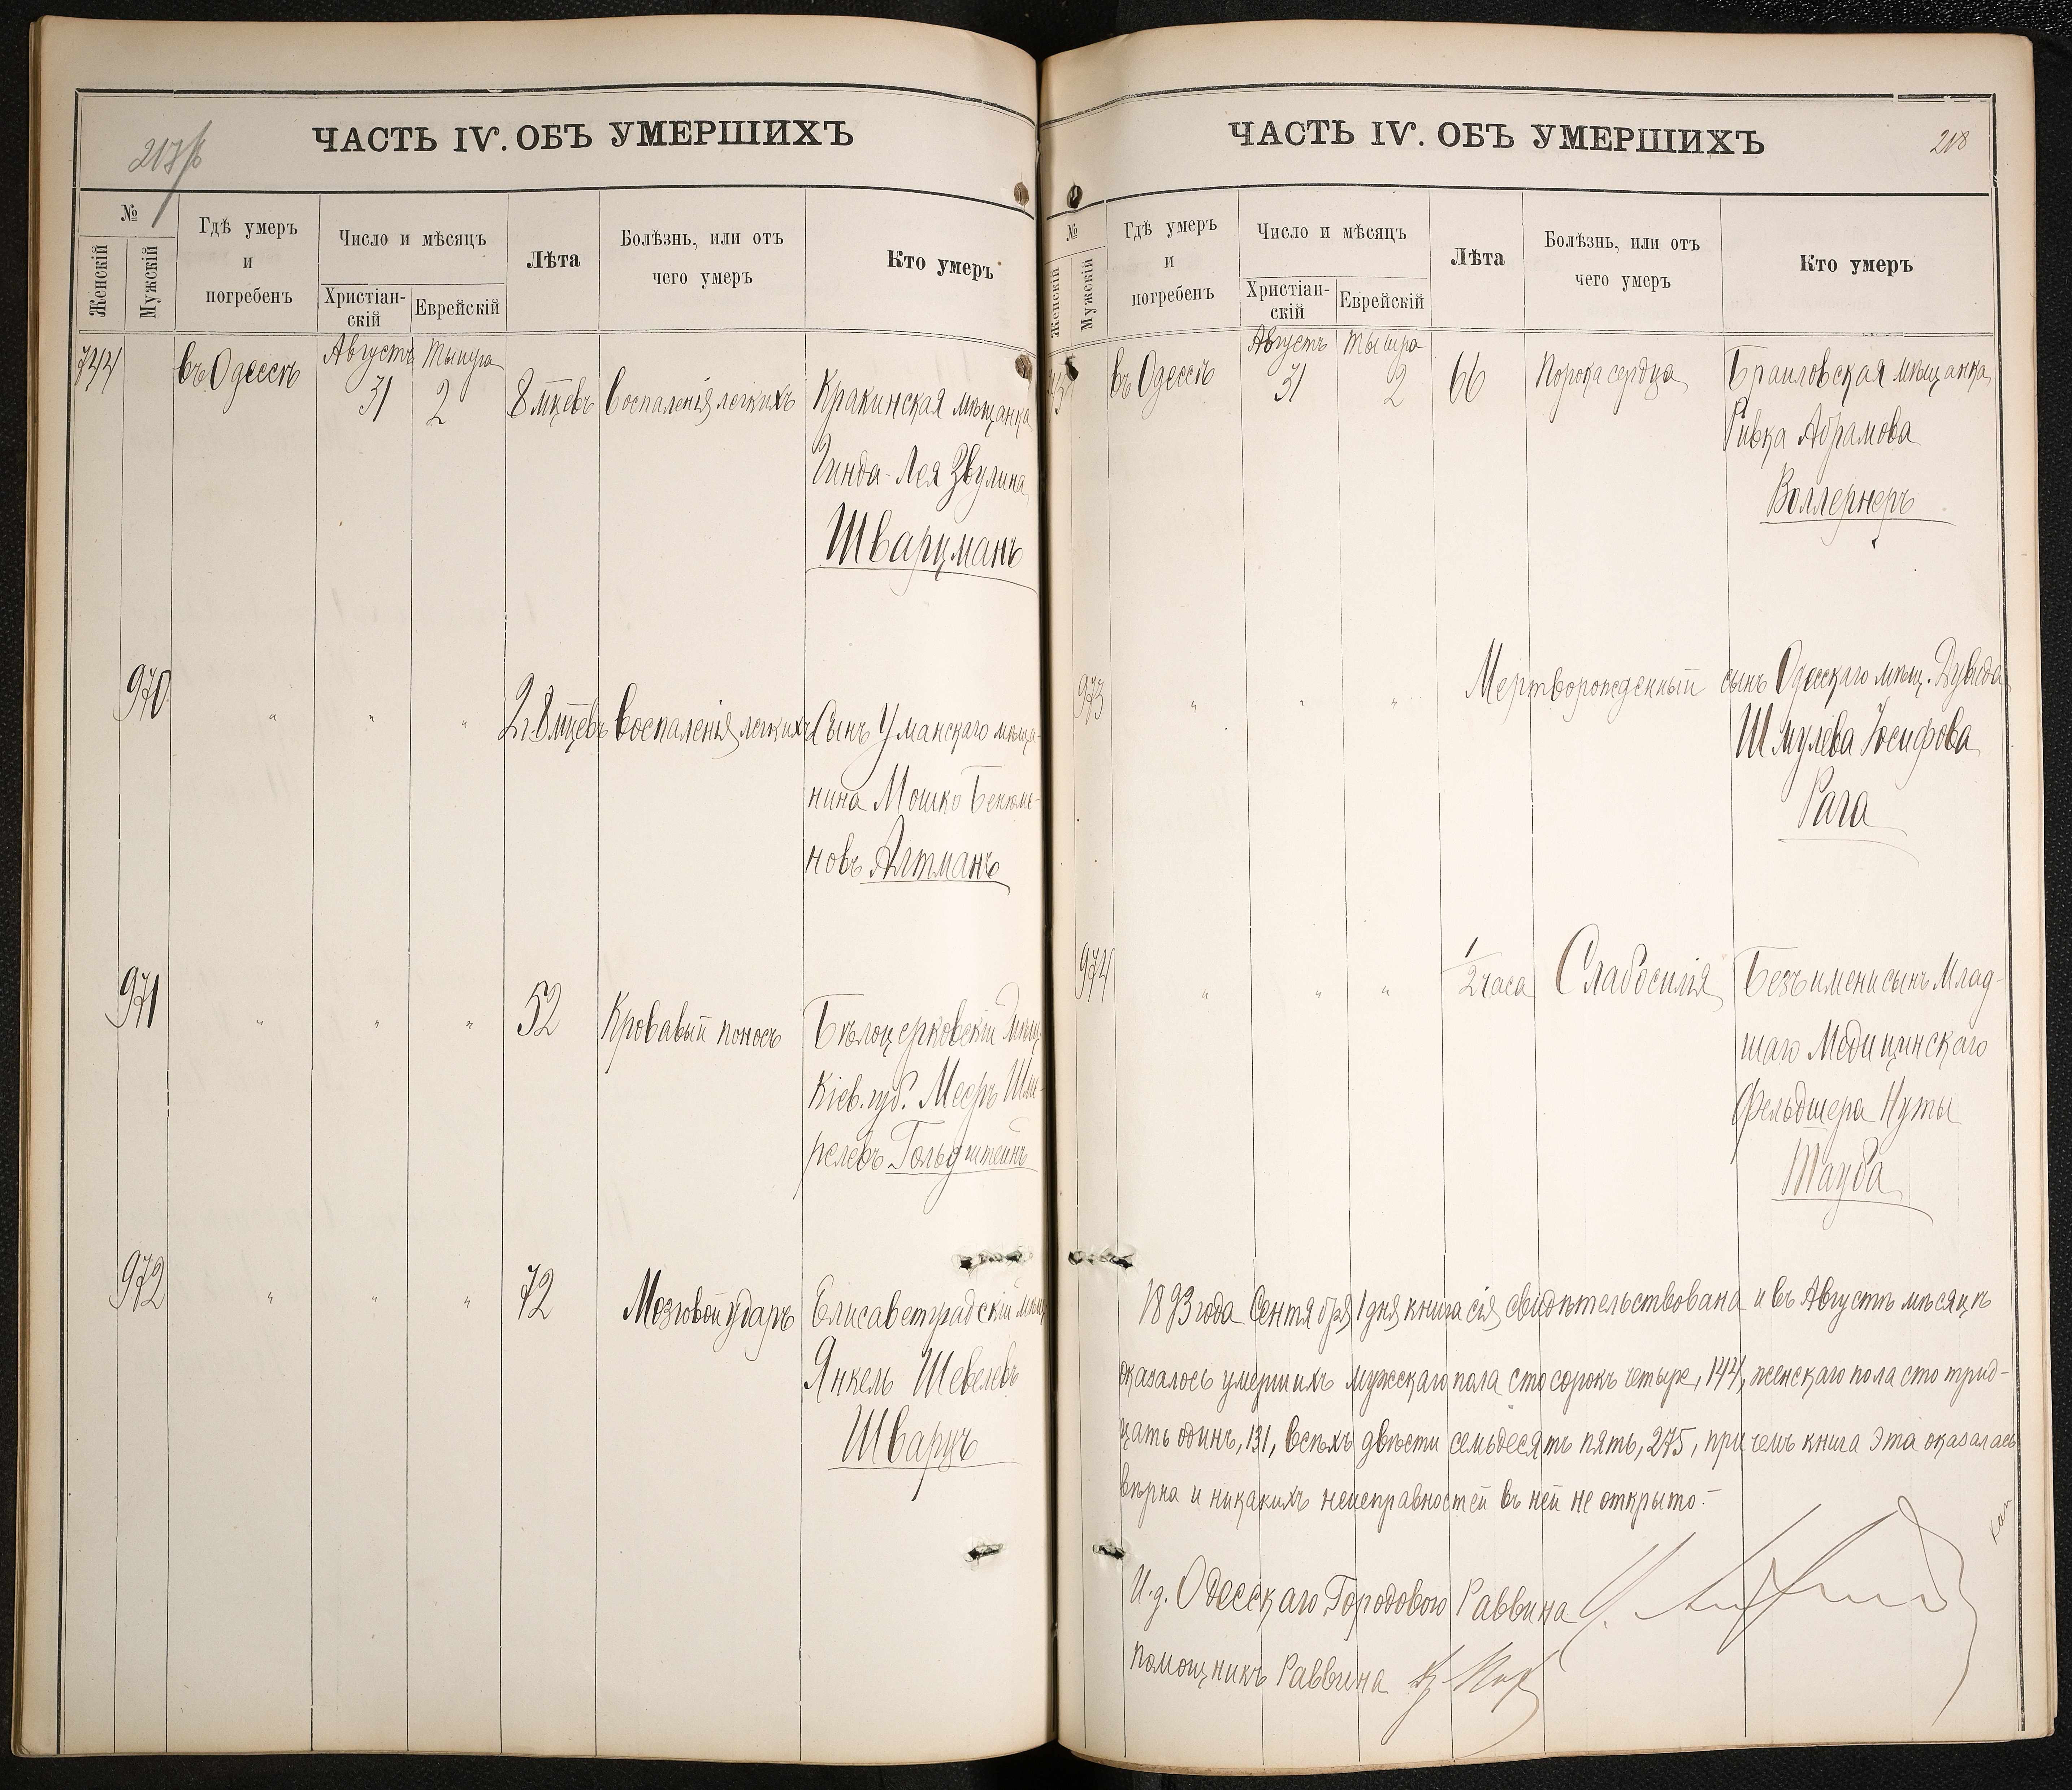 ЧАСТЬ IV. ОБЪ УМЕРШИХЪ
№
Женскій
Мужскій
Гдѣ умеръ
и
погребенъ
Число и мѣсяцъ
Христіан-
скій
Еврейскій
Лѣта
Болѣзнь, или отъ
чего умеръ
Кто умеръ
744
въ Одессѣ
Августъ
31
Тышра
2
8 мцевъ
Воспаленія легкихъ
Кракинская мѣщанка
Гинда-Лея Звулина
Шварцманъ
970
" " "
2 г. 8 мцевъ
Воспаленія легкихъ
Сынъ Уманскаго мѣща-
нина Мошко Бенюми-
новъ Алтманъ
971
" " "
52
Кровавый поносъ
Бѣлоцерковскій мѣщ.
Кіев. губ. Мееръ Шмe-
релевъ Гольдштейнъ
972
" " "
72
Мозговой ударъ
Елисаветградскій мѣщ.
Янкель Шевелевъ
Шварцъ
ЧАСТЬ IV. ОБЪ УМЕРШИХЪ
218
№
Женскій
Мужскій
Гдѣ умеръ
и
погребенъ
Число и мѣсяцъ
Христіан-
скій
Еврейскій
Лѣта
Болѣзнь, или отъ
чего умеръ
Кто умеръ
въ Одессѣ
Августъ
31
Тышра
2
66
Порока сердца
Браиловская мѣщанка
Ривка Абрамова
Воллернеръ
973
" " "
Мертворожденный
сынъ Одесскаго мѣщ. Дувида
Шмулева Іосифова
Рага
974
" " "
1/2 часа
Слабосилія
Безъ имени сынъ Млад-
шаго Медицинскаго
Фельдшера Нуты
Тауба
1893 года Сентября 1 дня книга сія свидѣтельствована и въ Августѣ мѣсяцѣ
оказалось умершихъ мужскаго пола сто сорокъ четыре, 144, женскаго пола сто трид-
цать одинъ, 131, всѣхъ двѣсти семьдесятъ пять, 275, при чемъ книга эта оказалась
вѣрна и никакихъ неисправностей въ ней не открыто.-
И. д. Одесскаго Городового Раввина
Помощникъ Раввина